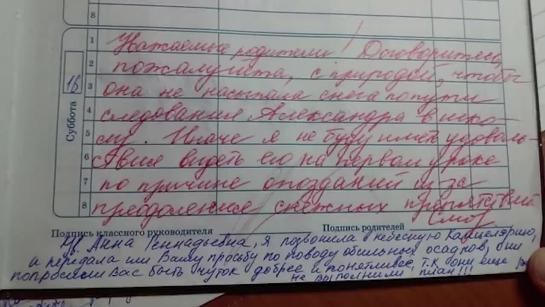 8
1
Уважаемые родители! Договоритесь,
2
пожалуйста, с природой, чтобы
16
3
она не насыпала снега по пути
4
следования Александра в шко-
Суббота
5
лу. Иначе я не буду иметь удоволь-
6
ствия видеть его на первом уроке
7
по причине опозданий из за
8
преодоления снежных препятствий
Подпись классного руководителя
Подпись родителей
Ув. Анна Геннадьевна, я позвонила в небесную канцелярию,
и передала им Вашу просьбу по поводу обильных осадков, они
попросили Вас быть чуток добрее и понятливее, т.к они еще
не выполнили план!!!